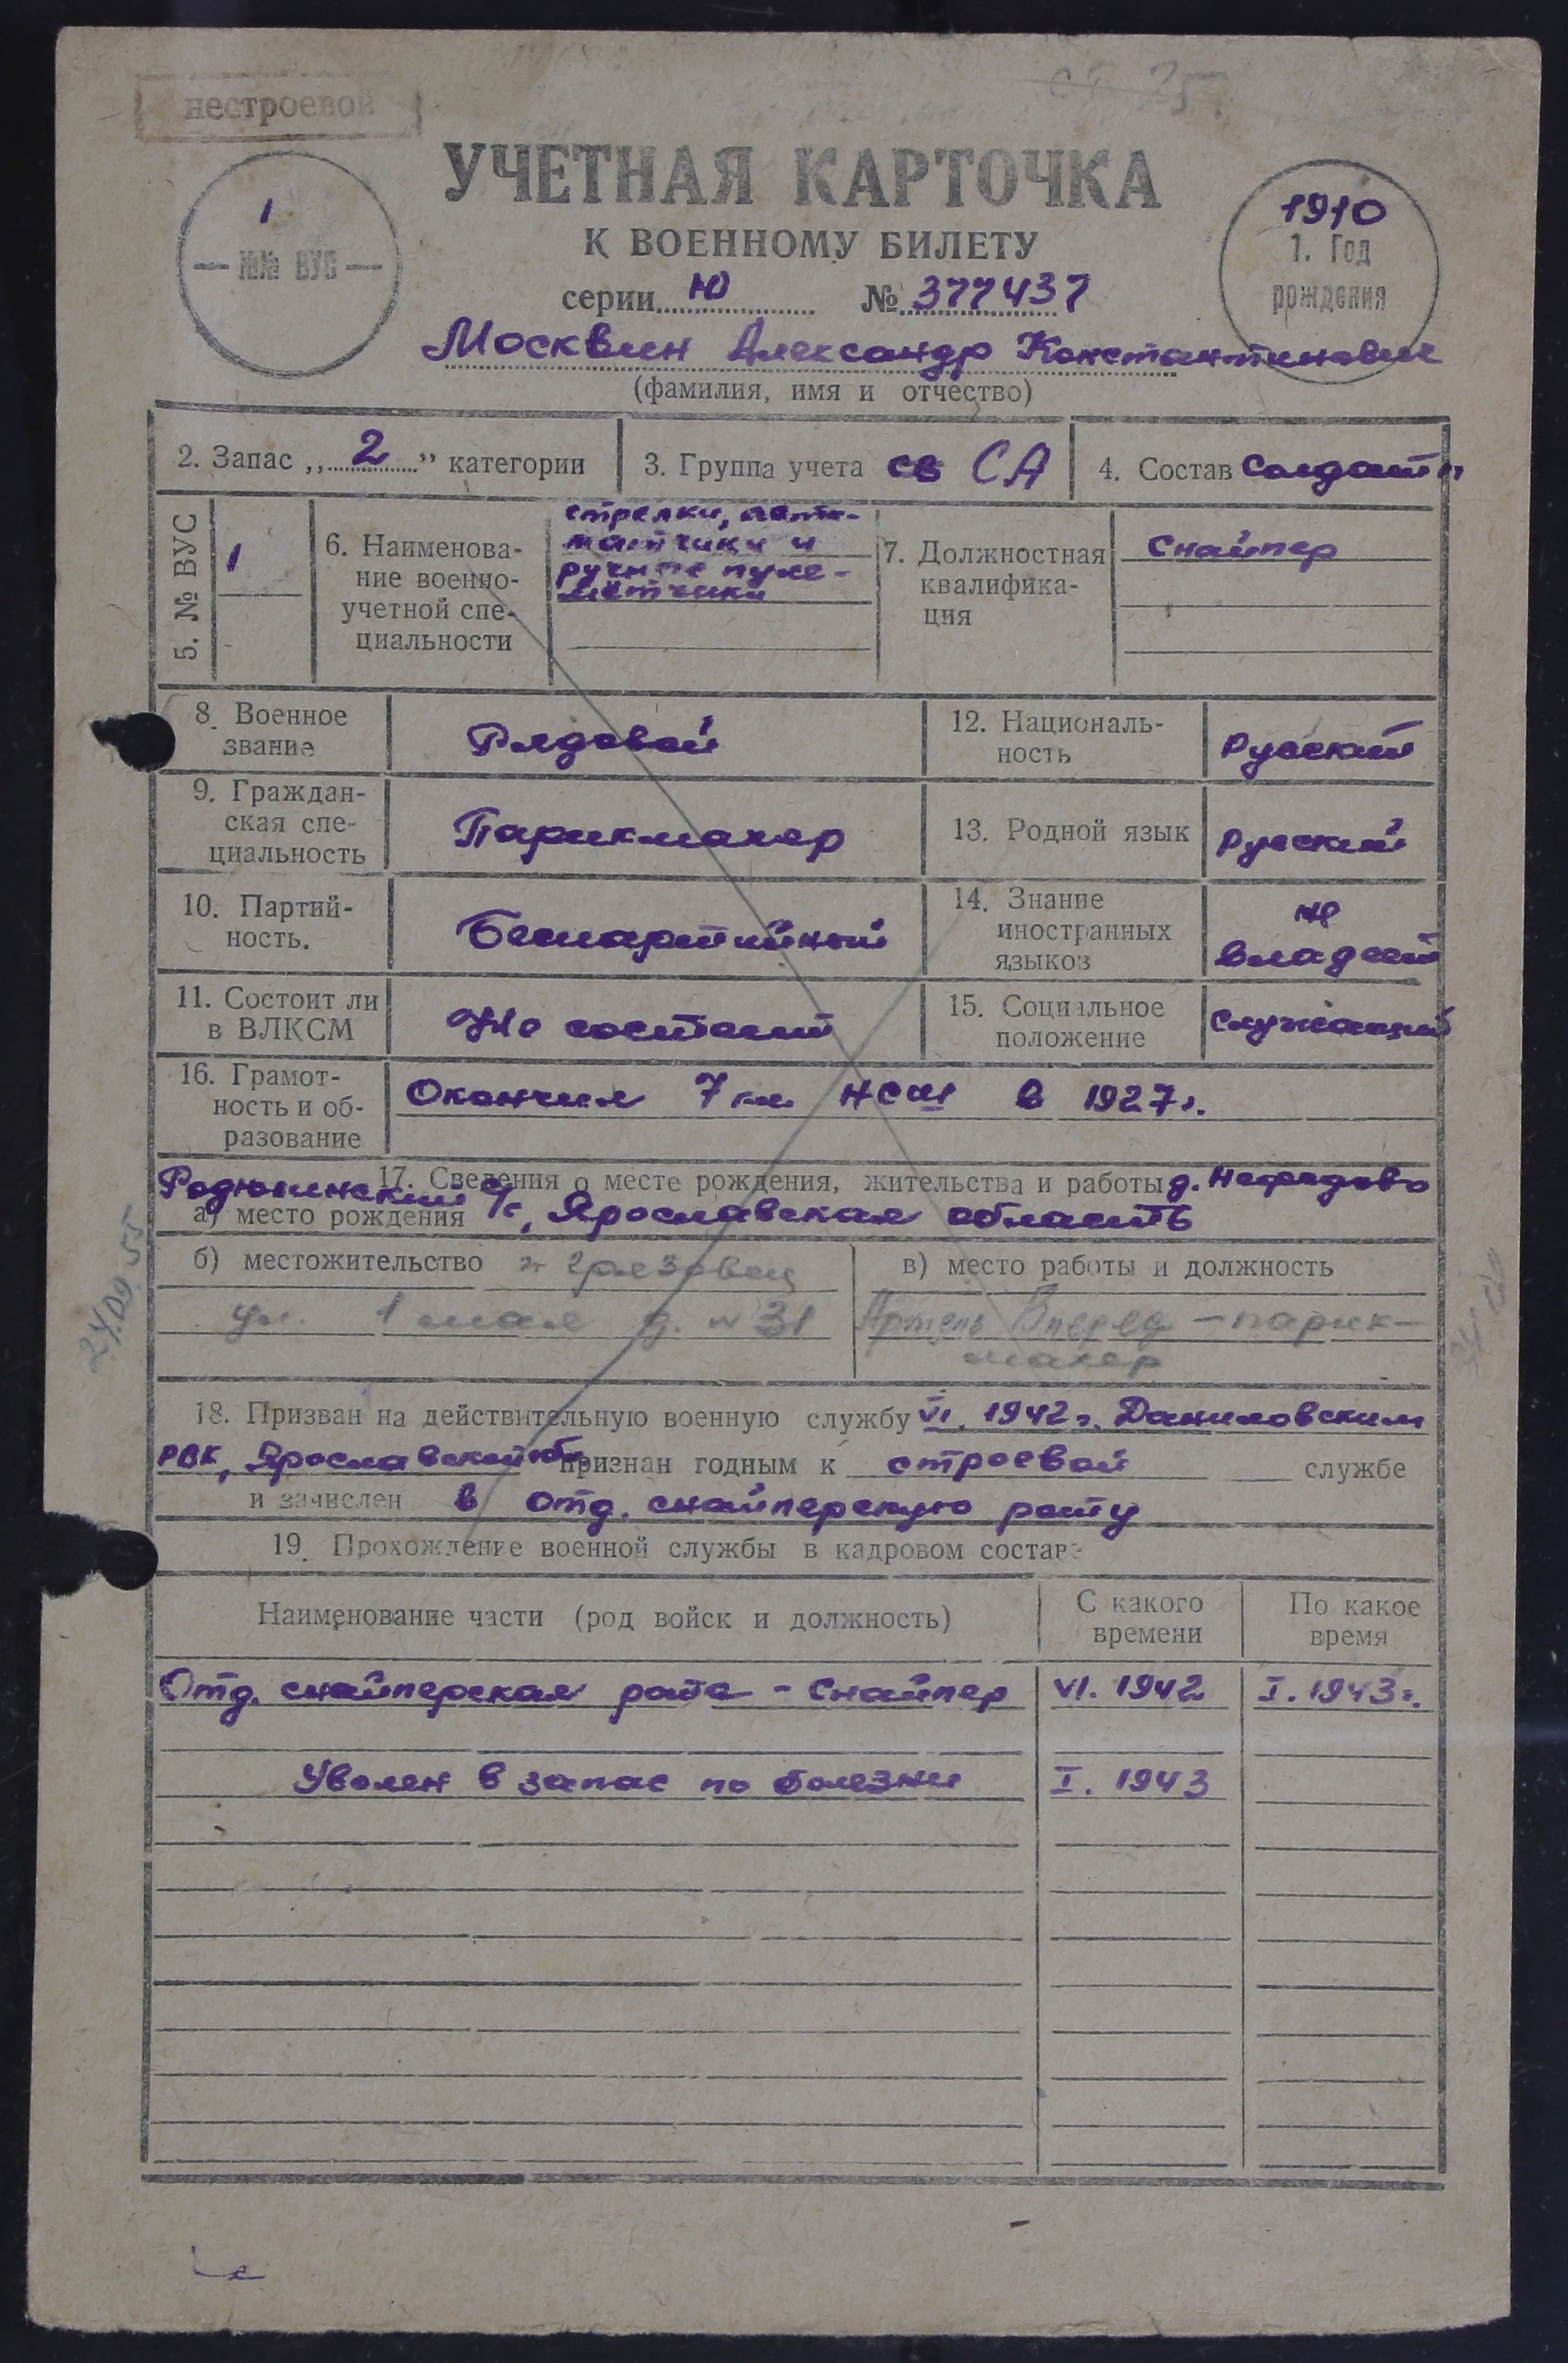 нестроевой
УЧЕТНАЯ КАРТОЧКА
К ВОЕННОМУ БИЛЕТУ
1
— №№ ВУС —
1910
1. Год
рождения
серии Ю № 377437
Москвин Александр Константинович
(фамилия, имя и отчество)
2. Запас „2” категории
3. Группа учета св СА
4. Состав Солдаты
5. № ВУС
1
6. Наименова-
ние военно-
учетной спе-
циальности
стрелки, авто-
матчики и
ручные пуле-
метчики
7. Должностная
квалифика-
ция
Снайпер
8. Военное
звание
Рядовой
12. Националь-
ность
Русский
9. Граждан-
ская спе-
циальность
Парикмахер
13. Родной язык
Русский
10. Партий-
ность.
Беспартийный
14. Знание
иностранных
языков
не
владеет
11. Состоит ли
в ВЛКСМ
Не состоит
15. Социальное
положение
Служащий
16. Грамот-
ность и об-
разование
Окончил 7 кл. НСШ в 1927г.
17. Сведения о месте рождения, жительства и работы д. Нефедово
а) место рождения с/с, Ярославская область
б) местожительство г. Грязовец
ул. 1 мая д. № 31
в) место работы и должность
Артель Вперед - парик-
махер
18. Призван на действительную военную службу VI. 1942 г. Даниловским
РВК, Ярославской обл. признан годным к строевой службе
и зачислен в отд. снайперскую роту
19. Прохождение военной службы в кадровом составе
Наименование части (род войск и должность)
С какого
времени
По какое
время
Отд. снайперская рота - Снайпер VI. 1942 I. 1943г.
Уволен в запас по болезни I. 1943